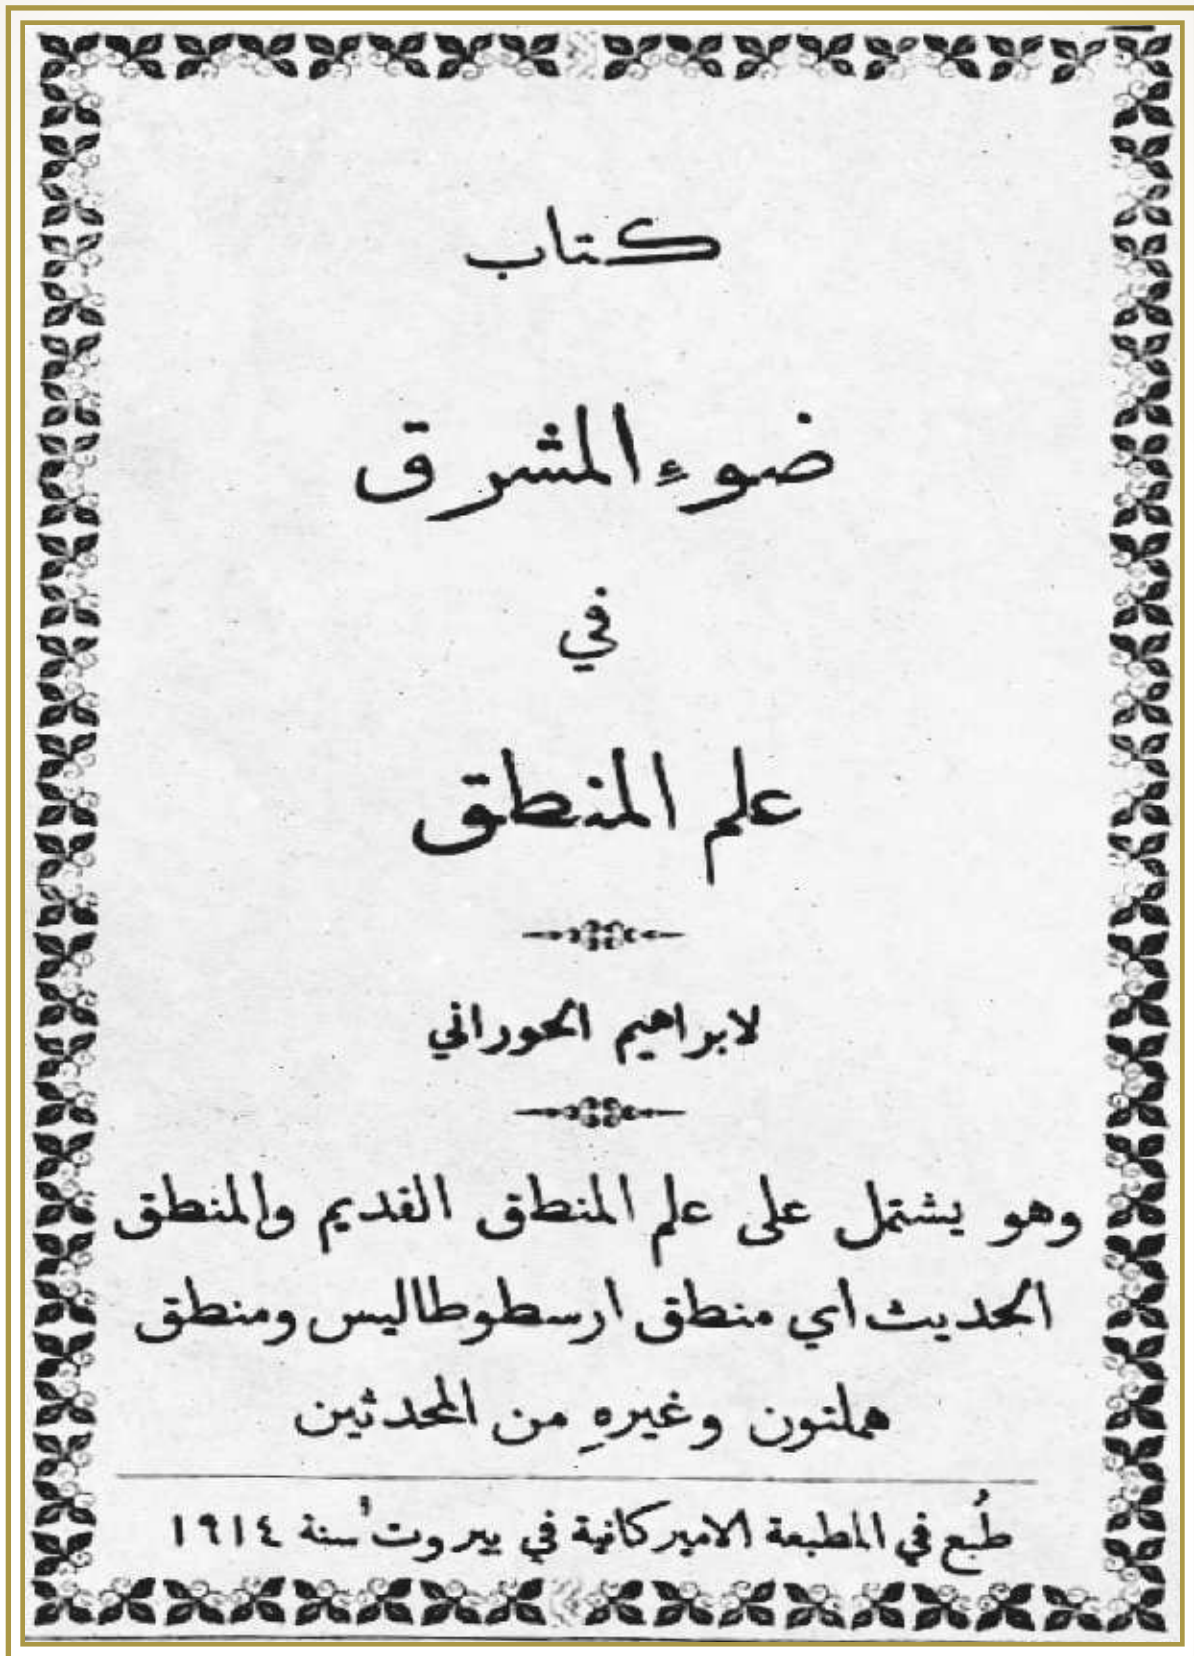 كتاب
ضوء المشرق
في
علم المنطق
لابراهيم الحوراني
وهو يشتمل على علم المنطق القديم والمنطق
الحديث اي منطق ارسطوطاليس ومنطق
هملتون وغيرهِ من المحدثين
طُبع في المطبعة الاميركانية في بيروت سنة ١٩١٤